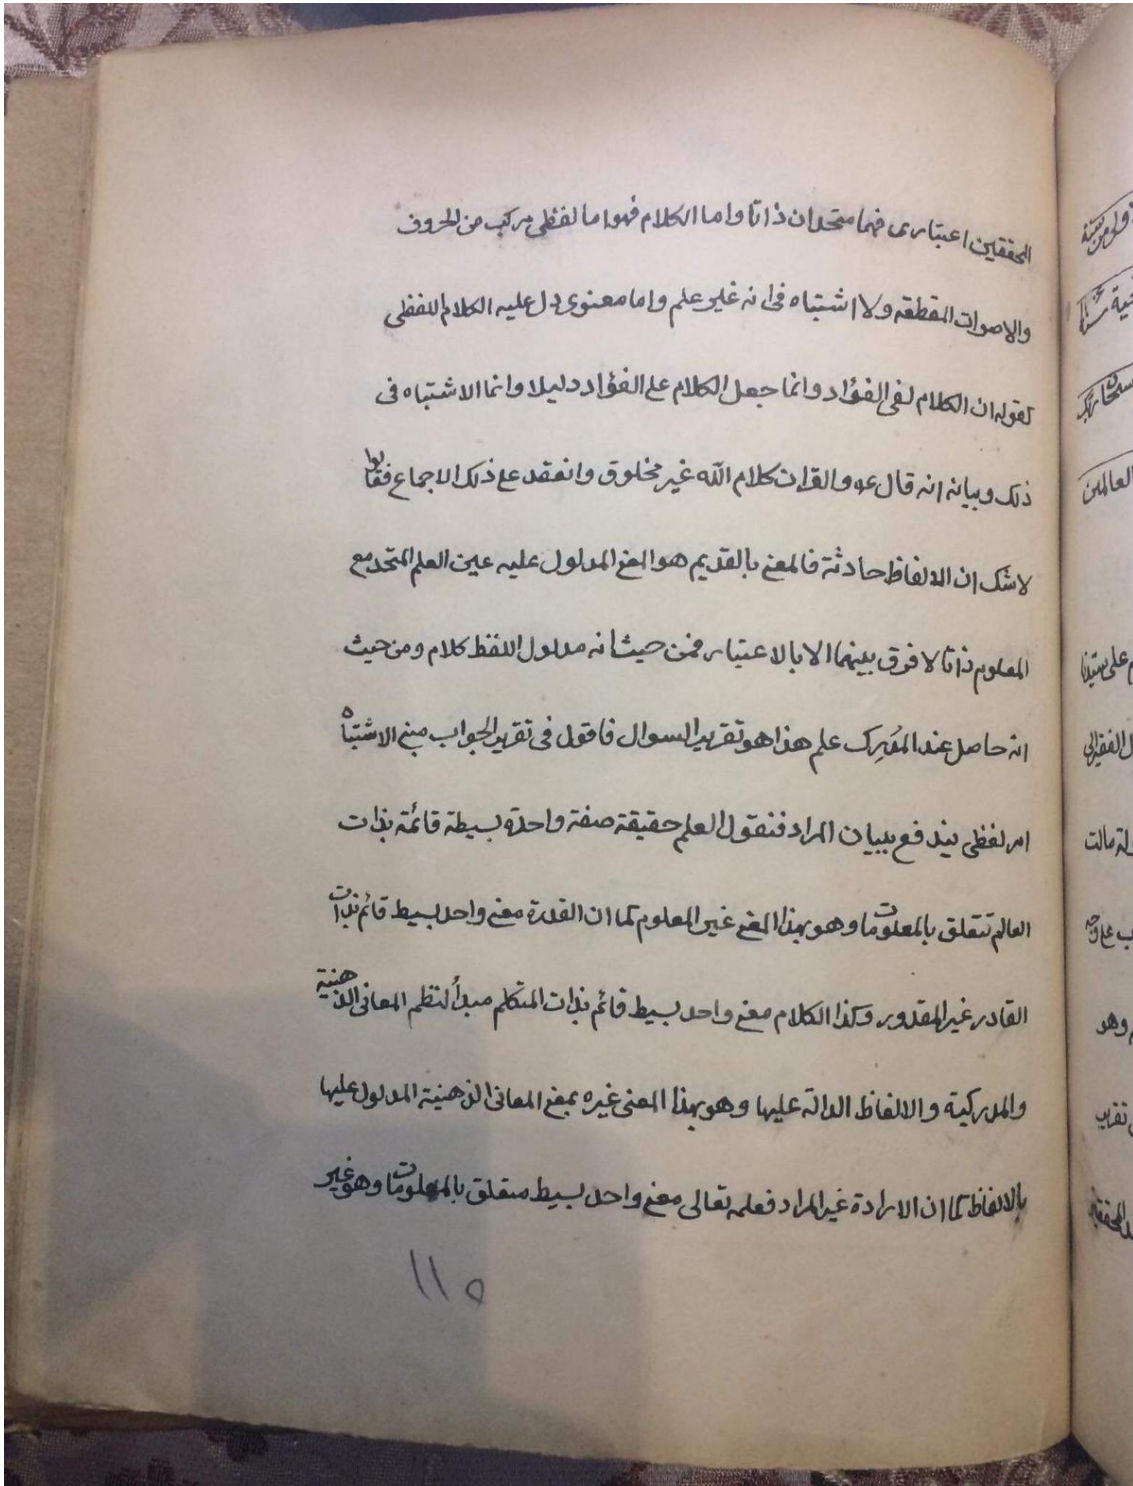 المحققين اعتبارى فهما متحدان ذاتا واما الكلام فهو اما لفظى مركب من الحروف
والاصوات المقطعه ولا اشتباه فى انه غير علم واما معنوى دل عليه الكلام اللفظى
كقوله ان الكلام لفى الفؤاد وانما جعل الكلام على الفؤاد دليلا وانما الاشتباه فى
ذلك وبيانه انه قال عم والقران كلام الله غير مخلوق وانعقد على ذلك الاجماع فقالوا
لا شك ان الالفاظ حادثة فالمعنى بالقديم هو المعنى المدلول عليه عين العلم المتحد مع
المعلوم ذاتا لا فرق بينهما الا بالاعتبار فمن حيث انه مدلول اللفظ كلام ومن حيث
انه حاصل عند المُدرِك علم هذا هو تقرير السوال فاقول فى تقرير الجواب مبنى الاشتباه
امر لفظى يندفع ببيان المراد فنقول العلم حقيقة صفة واحدة بسيطة قائمة بذات
العالم تتعلق بالمعلومات وهو بهذا المعنى غير المعلوم كما ان القدرة معنى واحد بسيط قائم بذات
القادر غير المقدور وكذا الكلام معنى واحد بسيط قائم بذات المتكلم مبدأ لنظم المعانى الذهنية
والمدركية و الالفاظ الدالة عليها وهو بهذا المعنى غيره بمعنى المعانى الذهنية المدلول عليها
بالالفاظ كما ان الارادة غير المراد فعلمه تعالى معنى واحد بسيط متعلق بالمعلومات وهو غير
١١٥
العالمين
وهو